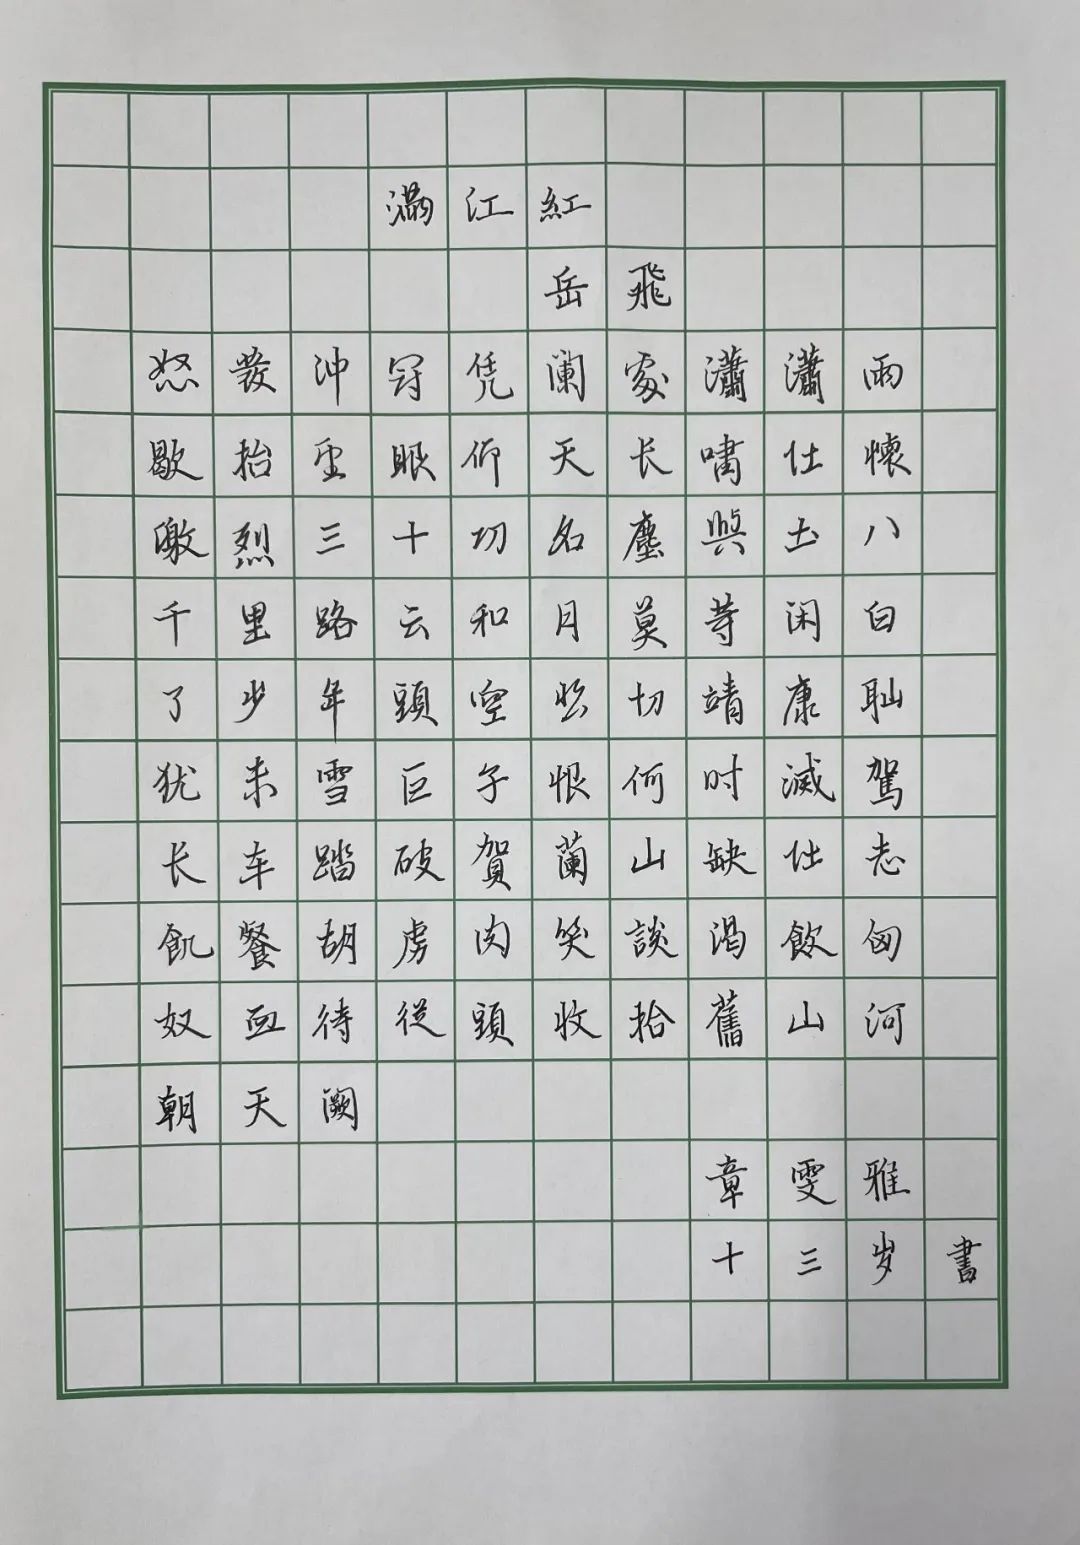 滿江紅
岳飛
怒發沖冠凭阑處瀟瀟雨
歇抬望眼仰天长啸壮懷
激烈三十功名塵與土八
千里路云和月莫等闲白
了少年頭空悲切靖康耻
犹未雪臣子恨何时滅駕
长车踏破賀蘭山缺壮志
飢餐胡虜肉笑談渴飲匈
奴血待從頭收拾舊山河
朝天阙
章雯雅
十三岁書